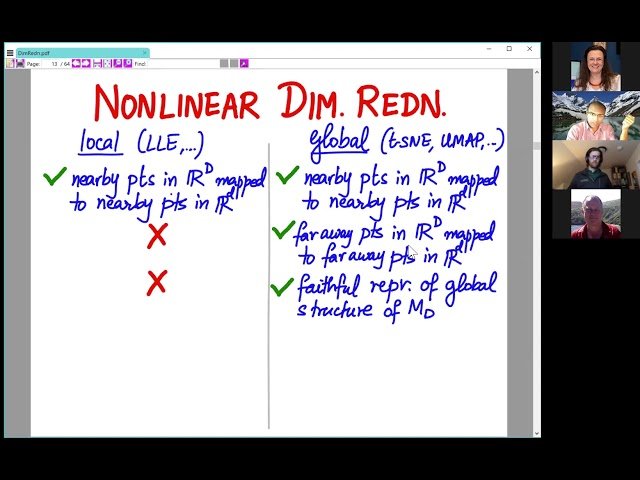 DimRedn.pdf
Page 13 / 64
Find:
NONLINEAR DIM. REDN.
local (LLE,...)
✓ nearby pts in ℝᴰ mapped
to nearby pts in ℝᵈ
✗
✗
global (t-SNE, UMAP,...)
✓ nearby pts in ℝᴰ mapped
to nearby pts in ℝᵈ
✓ far away pts in ℝᴰ mapped
to far away pts in ℝᵈ
✓ faithful repr. of global
structure of M_D